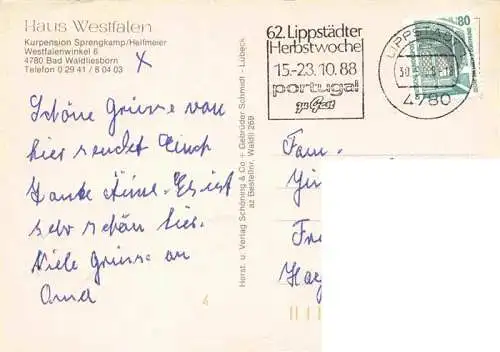 Haus Westfalen
Kurpension Sprengkamp/Helfmeier
Westfalenwinkel 6
4780 Bad Waldliesborn
Telefon 0 29 41 / 8 04 03
x
Schöne Grüsse von
hier sendet Euch
Es ist
sehr schön hier.
Viele Grüsse an
Herst. u. Verlag Schöning & Co + Gebrüder Schmidt - Lübeck
az Bestellnr. Waldli 269
62. Lippstädter
Herbstwoche
15.-23.10.88
portugal
zu Gast
LIPPSTADT
4780
80
Fam.
4